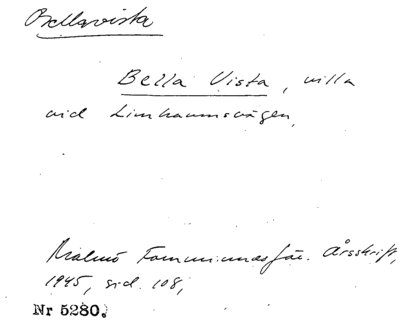 Bellavista
Bella Vista, villa
vid Limhamnsvägen,
Malmö Fornminnesför. Årsskrift,
1945, sid. 108,
Nr 5280.